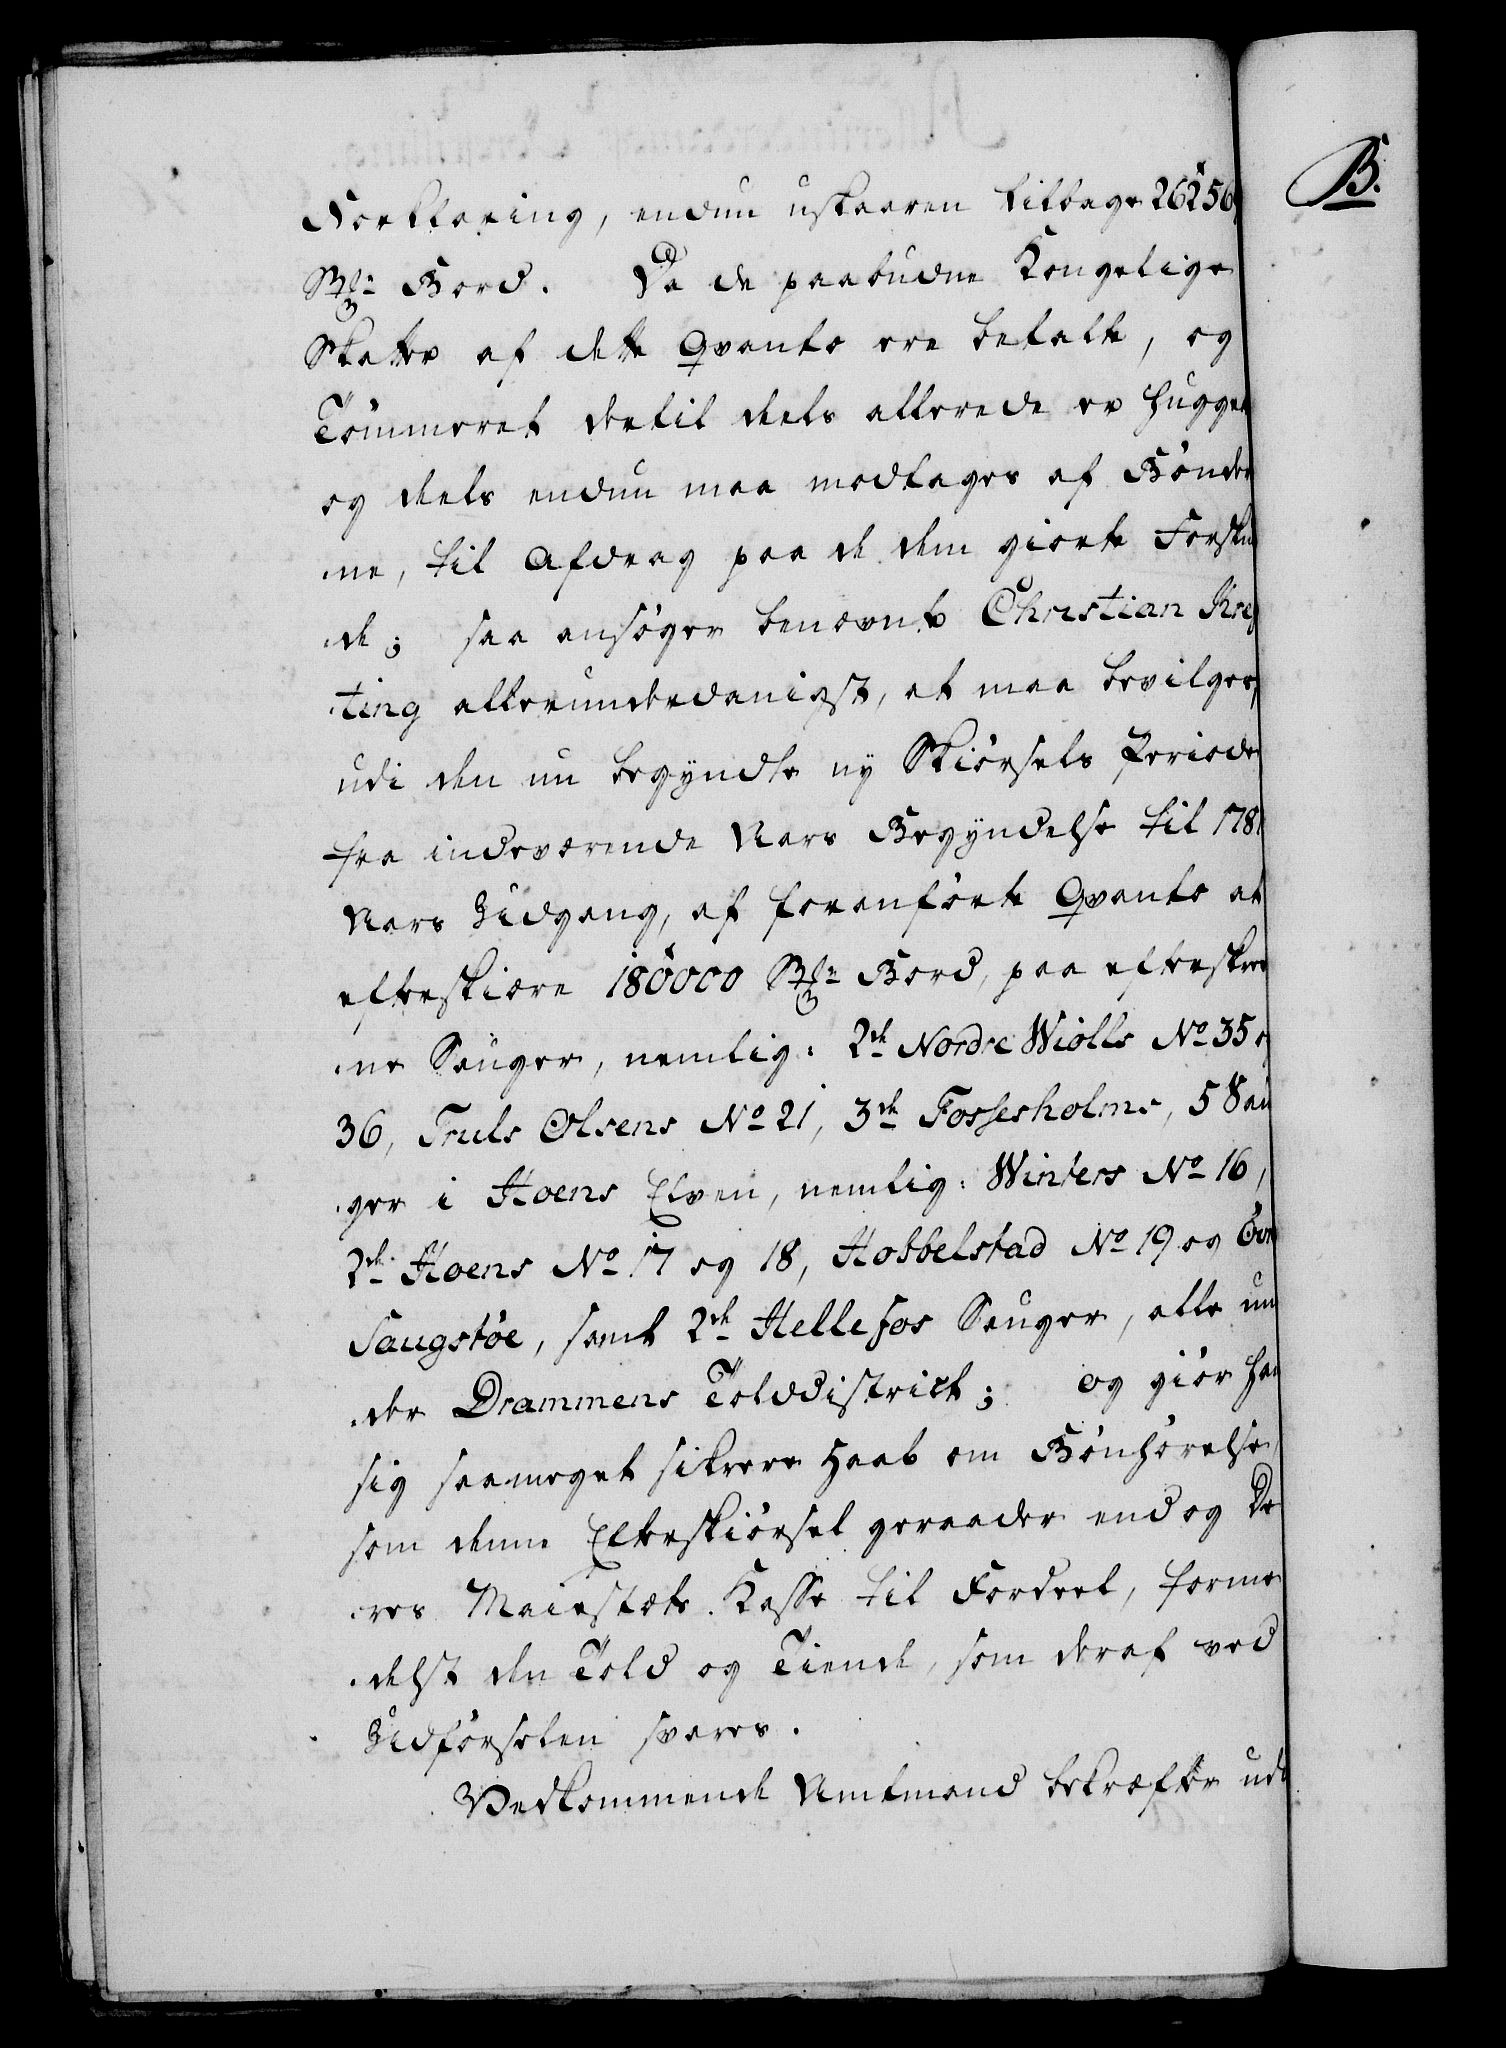 B.
Forklaring, endnu uskaaren tilbage 26256
Bord. Da de paabudne Kongelige
Skatter af dette Qvanto ere betalte, og
Tømmeret dertil deels allerede er hugget
og deels endnu maa modtages af Bønder
ne, til Afdrag paa de dem giorte Forsku
de; saa ansøger benævnte Christian Kre
ting allerunderdanigst, at maa bevilges,
udi den nu begyndte ny Skiørsels Periode
fra indeværende Aars Begyndelse til 1781
Aars Udgang, af foranførte Qvanto at
efterskiære 180000 Bord, paa efterskrev
ne Sauger, nemlig: 2de Nordre Wiolls No 35 o
36, Truls Olsens No 21, 3de Fossesholms, 5 Sau
ger i Hoens Elven, nemlig: Winters No 16,
2de Hoens No 17 og 18, Hobbelstad No 19 og Øvr
Saugstøe, samt 2de Hellefos Sauger, alle un
der Drammens Tolddistrict; og giør han
sig saameget sikrere Haab om Bønhørelse,
som denne Efterskiørsel geraader endog De
res Maiestæts Kasse til Fordeel, forme
delst den Told og Tiende, som deraf ved
Udførselen svares.
Vedkommende Amtmand bekræfter ude